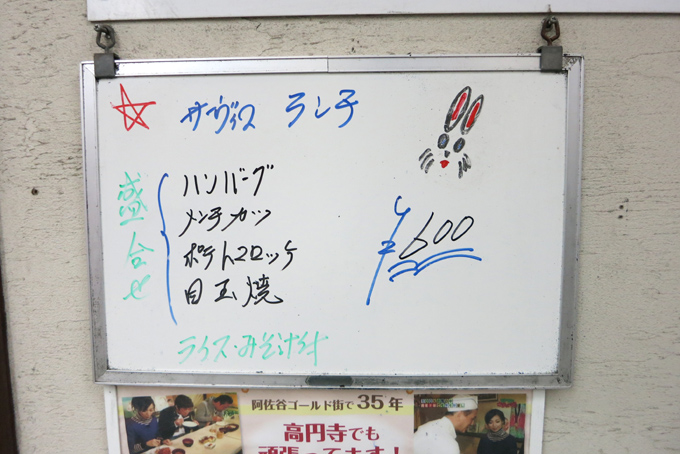 サーヴィス ランチ
盛合せ
ハンバーグ
メンチカツ
ポテトコロッケ
目玉焼
¥600
ライス・みそ汁付
阿佐谷ゴールド街で35年
高円寺でも
頑張ってます!